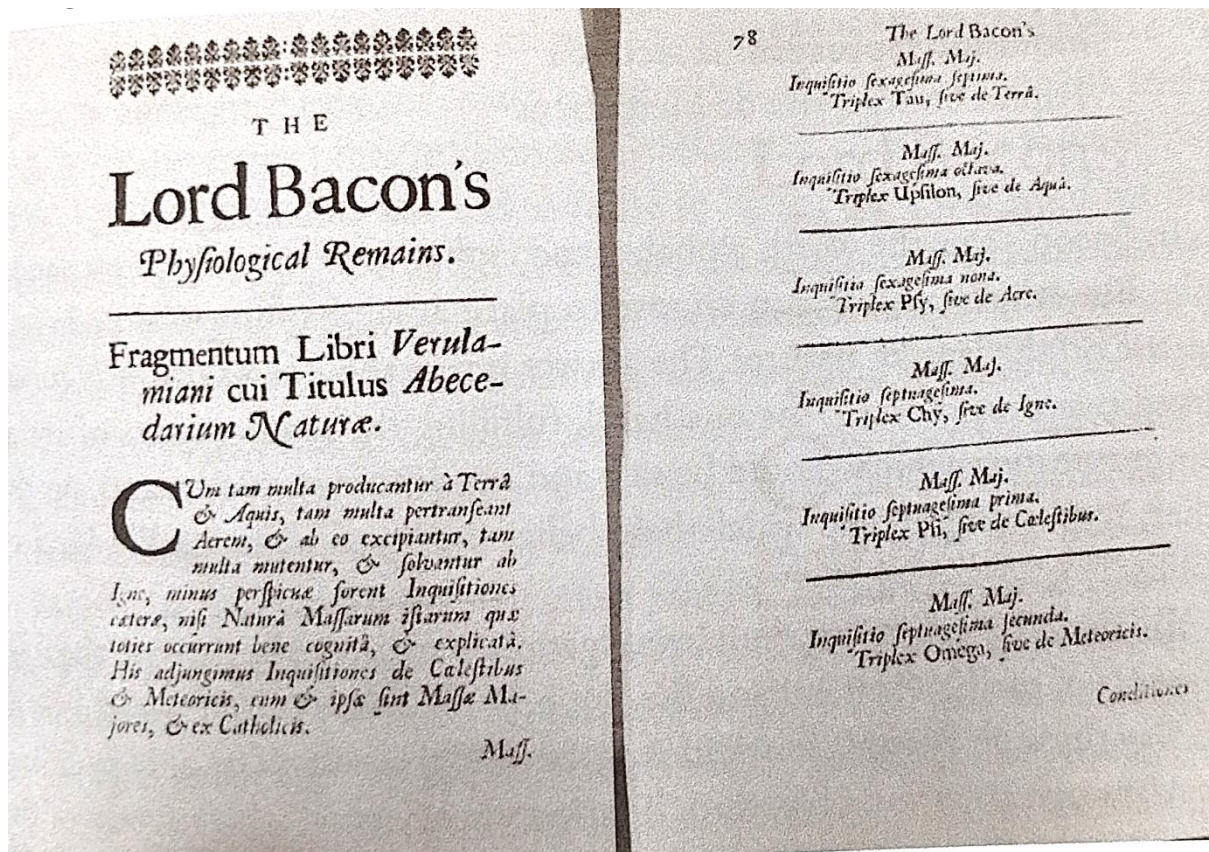 THE
Lord Bacon's
Phyſiological Remains.
Fragmentum Libri Verula-
miani cui Titulus Abece-
darium Naturæ.
CUm tam multa producantur à Terrâ
& Aquis, tam multa pertranſeant
Aerem, & ab eo excipiantur, tam
multa mutentur, & ſolvantur ab
Igne, minus perſpicuæ forent Inquiſitiones
cæteræ, niſi Naturâ Maſſarum iſtarum quæ
toties occurrunt bene cognitâ, & explicatâ.
His adjungimus Inquiſitiones de Cæleſtibus
& Meteoricis, cum & ipſæ ſint Maſſæ Ma-
jores, & ex Catholicis.
Maſſ.
78 The Lord Bacon's
Maſſ. Maj.
Inquiſitio ſexageſima ſeptima.
Triplex Tau, ſive de Terrâ.
Maſſ. Maj.
Inquiſitio ſexageſima octava.
Triplex Upſilon, ſive de Aquâ.
Maſſ. Maj.
Inquiſitio ſexageſima nona.
Triplex Pſy, ſive de Aere.
Maſſ. Maj.
Inquiſitio ſeptuageſima.
Triplex Chy, ſive de Igne.
Maſſ. Maj.
Inquiſitio ſeptuageſima prima.
Triplex Pſi, ſive de Cæleſtibus.
Maſſ. Maj.
Inquiſitio ſeptuageſima ſecunda.
Triplex Omega, ſive de Meteoricis.
Conditiones